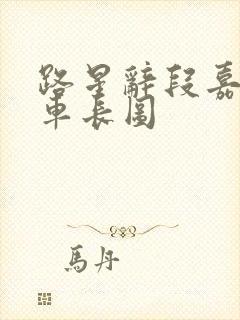 路星辭段嘉
車長圖
馬丹